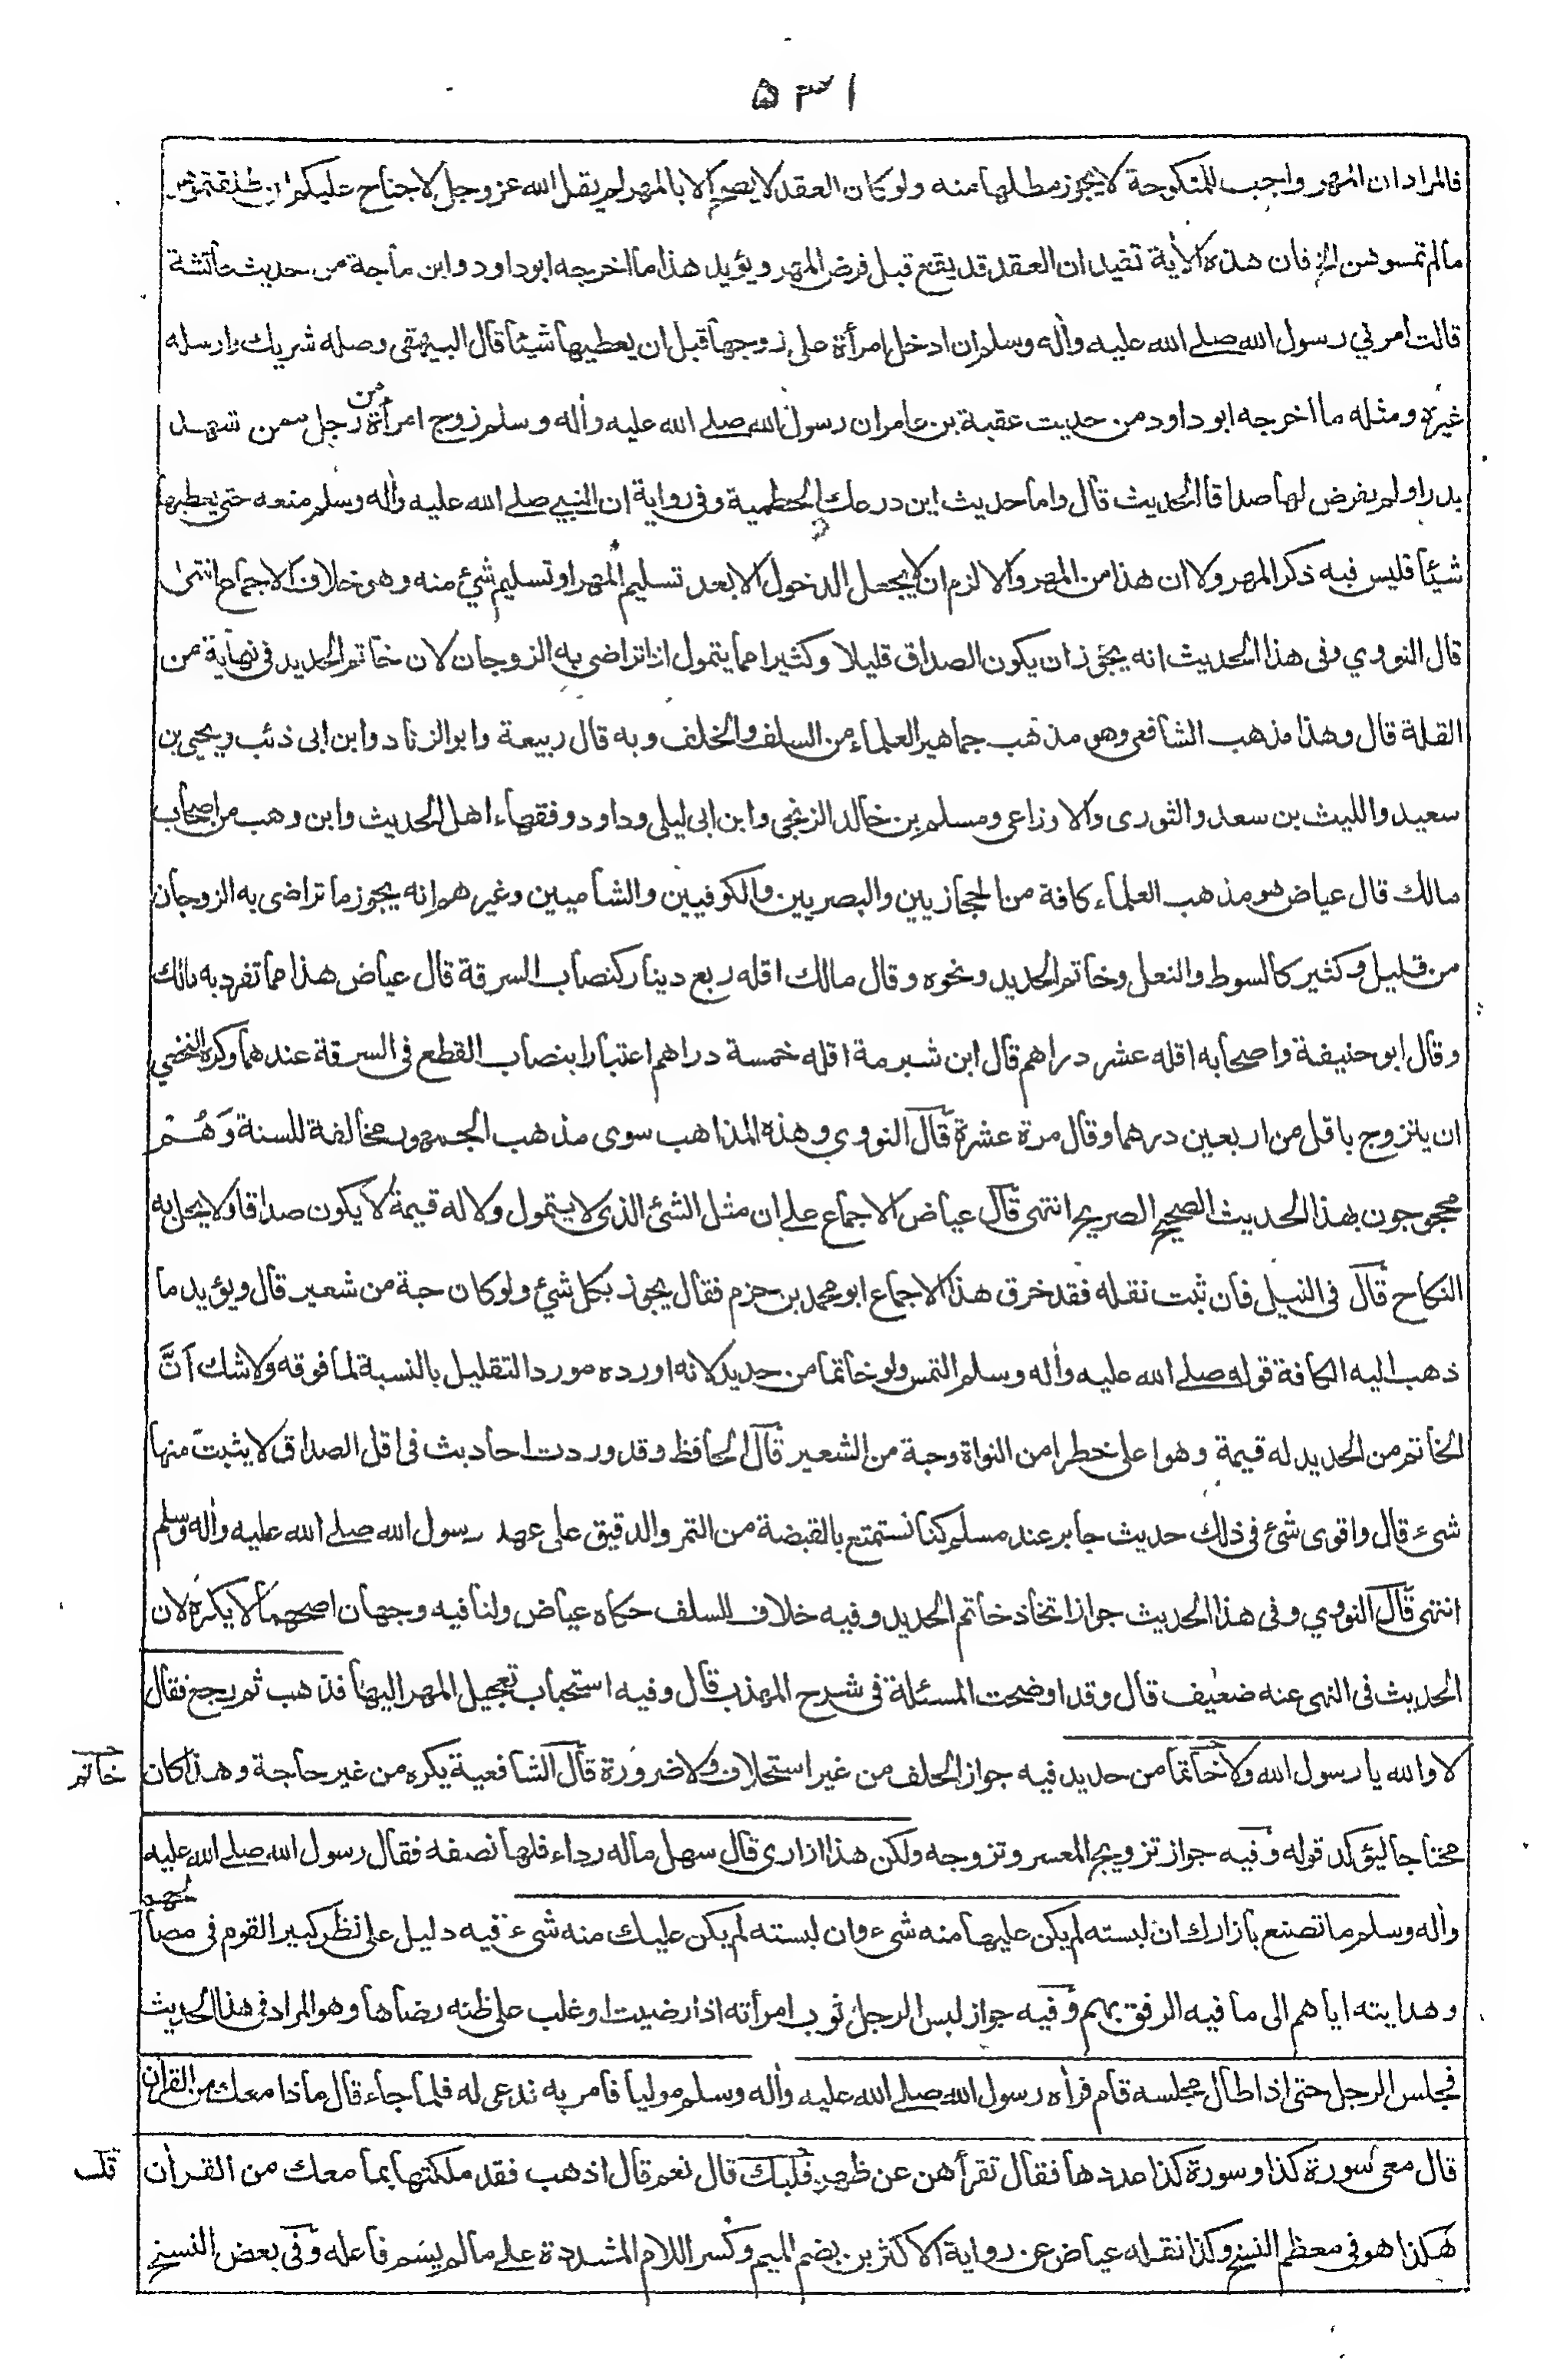 ٥٣١
فالمراد ان المهر واجب للمنكوحة لا يجوز مطلها منه ولو كان العقد لا يصح الا بالمهر لم يقل الله عز وجل لا جناح عليكم ان طلقتم
ما لم تمسوهن الخ فان هذه الأية تفيد ان العقد قد يقع قبل فرض المهر ويؤيد هذا ما اخرجه ابوداود وابن ماجة من حديث عائشة
قالت امرني رسول الله صلے الله عليه واٰله وسلم ان ادخل امرأة علی زوجها قبل ان يعطيها شيئا قال البيهقی وصله شريك وارسله
غيره ومثله ما اخرجه ابو داود من حديث عقبة بن عامر ان رسول الله صلے الله عليه واٰله وسلم زوج امرأة من رجل ممن شهد
بدرا ولم يفرض لها صداقا الحديث قال واما حديث اين درعك الحطمية وفی رواية ان النبي صلے الله عليه واٰله وسلم منعه حتی يعطيها
شيئا فليس فيه ذكر المهر ولا ان هذا من المهر والا لزم ان لا يجعل الدخول الا بعد تسليم المهر او تسليم شيء منه وهی خلاف الاجماع انتهی
قال النووي وفی هذا الحديث انه يجوز ان يكون الصداق قليلا وكثيرا مما يتمول اذا تراضی به الزوجان لان خاتم الحديد فی نهاية من
القلة قال وهذا مذهب الشافعی وهو مذهب جماهير العلماء من السلف والخلف وبه قال ربيعة وابو الزناد وابن ابی ذئب ويحيی بن
سعيد والليث بن سعد والثوری والاوزاعی ومسلم بن خالد الزنجی وابن ابی ليلی وداود وفقهاء اهل الحديث وابن وهب من اصحاب
مالك قال عياض هو مذهب العلماء كافة من الحجازيين والبصريين والكوفيين والشاميين وغيرهم انه يجوز ما تراضی به الزوجان
من قليل وكثير كالسوط والنعل وخاتم الحديد ونحوه وقال مالك اقله ربع دينار كنصاب السرقة قال عياض هذا مما تفرد به مالك
وقال ابو حنيفة واصحابه اقله عشر دراهم قال ابن شبرمة اقله خمسة دراهم اعتبارا بنصاب القطع فی السرقة عندهما وكره النخعي
ان يتزوج باقل من اربعين درهما وقال مرة عشرة قال النووي وهذه المذاهب سوی مذهب الجمهور مخالفة للسنة وَهُمْ
محجوجون بهذا الحديث الصحيح الصريح انتهی قال عياض الاجماع علے ان مثل الشئ الذی لا يتمول ولا له قيمة لا يكون صداقا ولا يحل به
النكاح قال فی النيل فان ثبت نقله فقد خرق هذا الاجماع ابو محمد بن حزم فقال يجوز بكل شيء ولو كان حبة من شعير قال ويؤيد ما
ذهب اليه الكافة قوله صلے الله عليه واٰله وسلم التمس ولو خاتما من حديد لانه اورده مورد التقليل بالنسبة لما فوقه ولا شك اَنَّ
الخاتم من الحديد له قيمة وهو اعلی خطرا من النواة وحبة من الشعير قال الحافظ وقد وردت احاديث فی اقل الصداق لا يثبت منها
شیء قال واقوی شئ فی ذلك حديث جابر عند مسلم كنا نستمتع بالقبضة من التمر والدقيق علی عهد رسول الله صلے الله عليه واٰله وسلم
انتهی قال النووي وفی هذا الحديث جواز اتخاذ خاتم الحديد وفيه خلاف للسلف حكاه عياض ولنا فيه وجهان اصحهما لا يكره لان
الحديث فی النهی عنه ضعيف قال وقد اوضحت المسئلة فی شرح المهذب قال وفيه استحباب تعجيل المهر اليها فذهب ثم رجع فقال
لا والله يا رسول الله ولا خاتما من حديد فيه جواز الحلف من غير استحلاف ولا ضرورة قال الشافعية يكره من غير حاجة وهذا كان
خاتم
محتاجا ليؤكد قوله وفيه جواز تزويج المعسر وتزوجه ولكن هذا ازاری قال سهل ماله رداء فلها نصفه فقال رسول الله صلے الله عليه
واٰله وسلم ما تصنع بازارك ان لبسته لم يكن عليها منه شیء وان لبسته لم يكن عليك منه شیء فيه دليل علی نظر كبير القوم فی مصالحهم
وهدايته اياهم الی ما فيه الرفق بهم وفيه جواز لبس الرجل ثوب امرأته اذا رضيت او غلب علی ظنه رضاها وهو المراد فی هذا الحديث
فجلس الرجل حتی اذا طال مجلسه قام فراه رسول الله صلے الله عليه واٰله وسلم موليا فامر به فدعی له فلما جاء قال ماذا معك من القراٰن
قال معی سورة كذا وسورة كذا عددها فقال تقرأهن عن ظهر قلبك قال نعم قال اذهب فقد ملكتها بما معك من القراٰن
قلب
هكذا هو فی معظم النسخ وكذا نقله عياض عن رواية الاكثرين بضم الميم وكسر اللام المشددة علے ما لم يسم فاعله وفی بعض النسخ